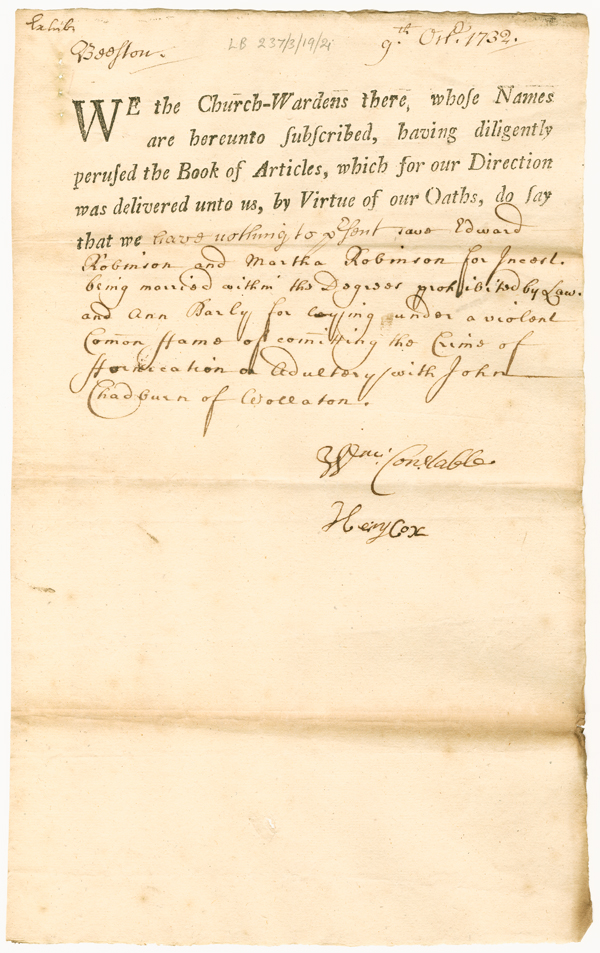 Exhib:
Beeston.
LB 237/3/19/2i
9th. Octr. 1732.
WE the Church-Wardens there, whose Names
are hereunto ſubſcribed, having diligently
peruſed the Book of Articles, which for our Direction
was delivered unto us, by Virtue of our Oaths, do ſay
that we have nothing to pſent save Edward
Robinson and Martha Robinson for Incest.
being married within the Degrees prohibited by Law.
and Ann Barly for lying under a violent
Com̄on Fame of com̄itting the Crime of
Fornication or Adultery with John
Chadburn of Wollaton.
Wm: Constable
Henry Cox